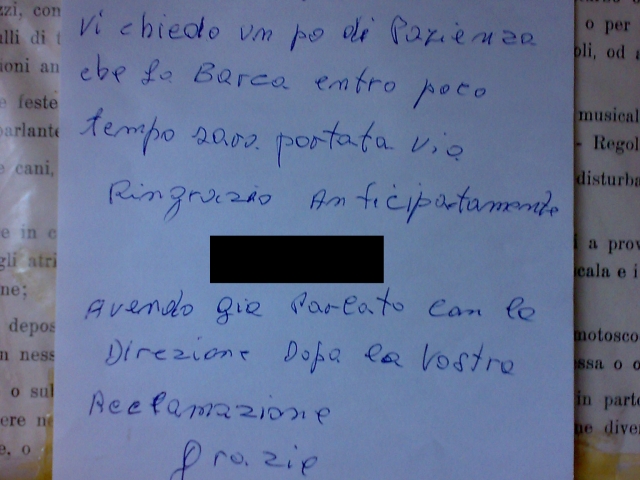 Vi chiedo un po di Pazienza
che la Barca entro poco
tempo sara portata via
Ringrazio Anticipatamente
Avendo gia Parlato con la
Direzione Dopo la Vostra
Reclamazione
Grazie
zzi, con
ulli di t
ioni an
e feste
parlante
e cani,
e in c
gli atri
ne;
depos
n ness
o sul
ere ne
e, o
o per
oli, od a
musical
- Regol
disturba
i a prov
cala e i
motosc
essa o o
in part
ne dive